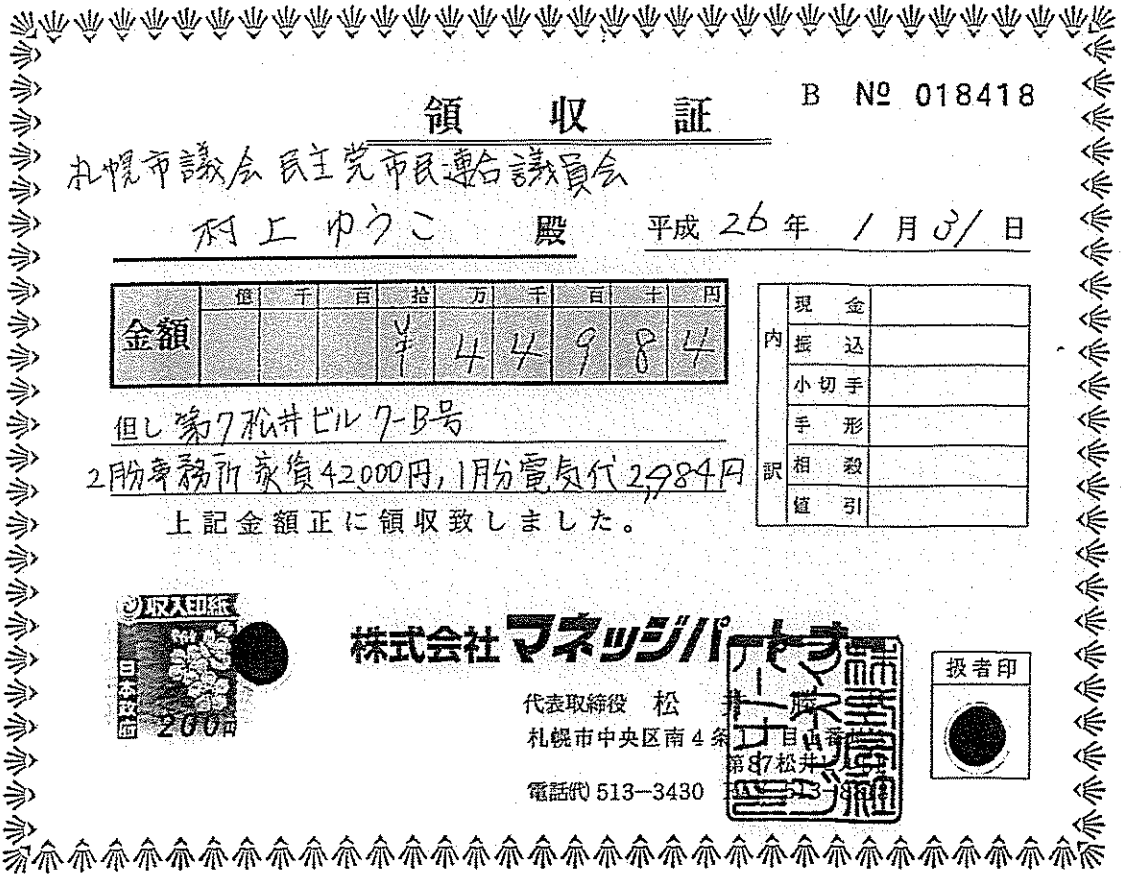 B № 018418
領収証
札幌市議会 民主党市民連合議員会
村上ゆうこ 殿
平成 26年 1月31日
億 千 百 拾 万 千 百 十 円
金額 ¥44984
内訳
現金
振込
小切手
手形
相殺
値引
但し 第7松井ビル 7-B号
2月分事務所家賃42,000円,1月分電気代2,984円
上記金額正に領収致しました。
収入印紙
日本政府
200円
株式会社マネッジパートナー
代表取締役 松井
札幌市中央区南4条
第87松井
電話代513-3430
扱者印